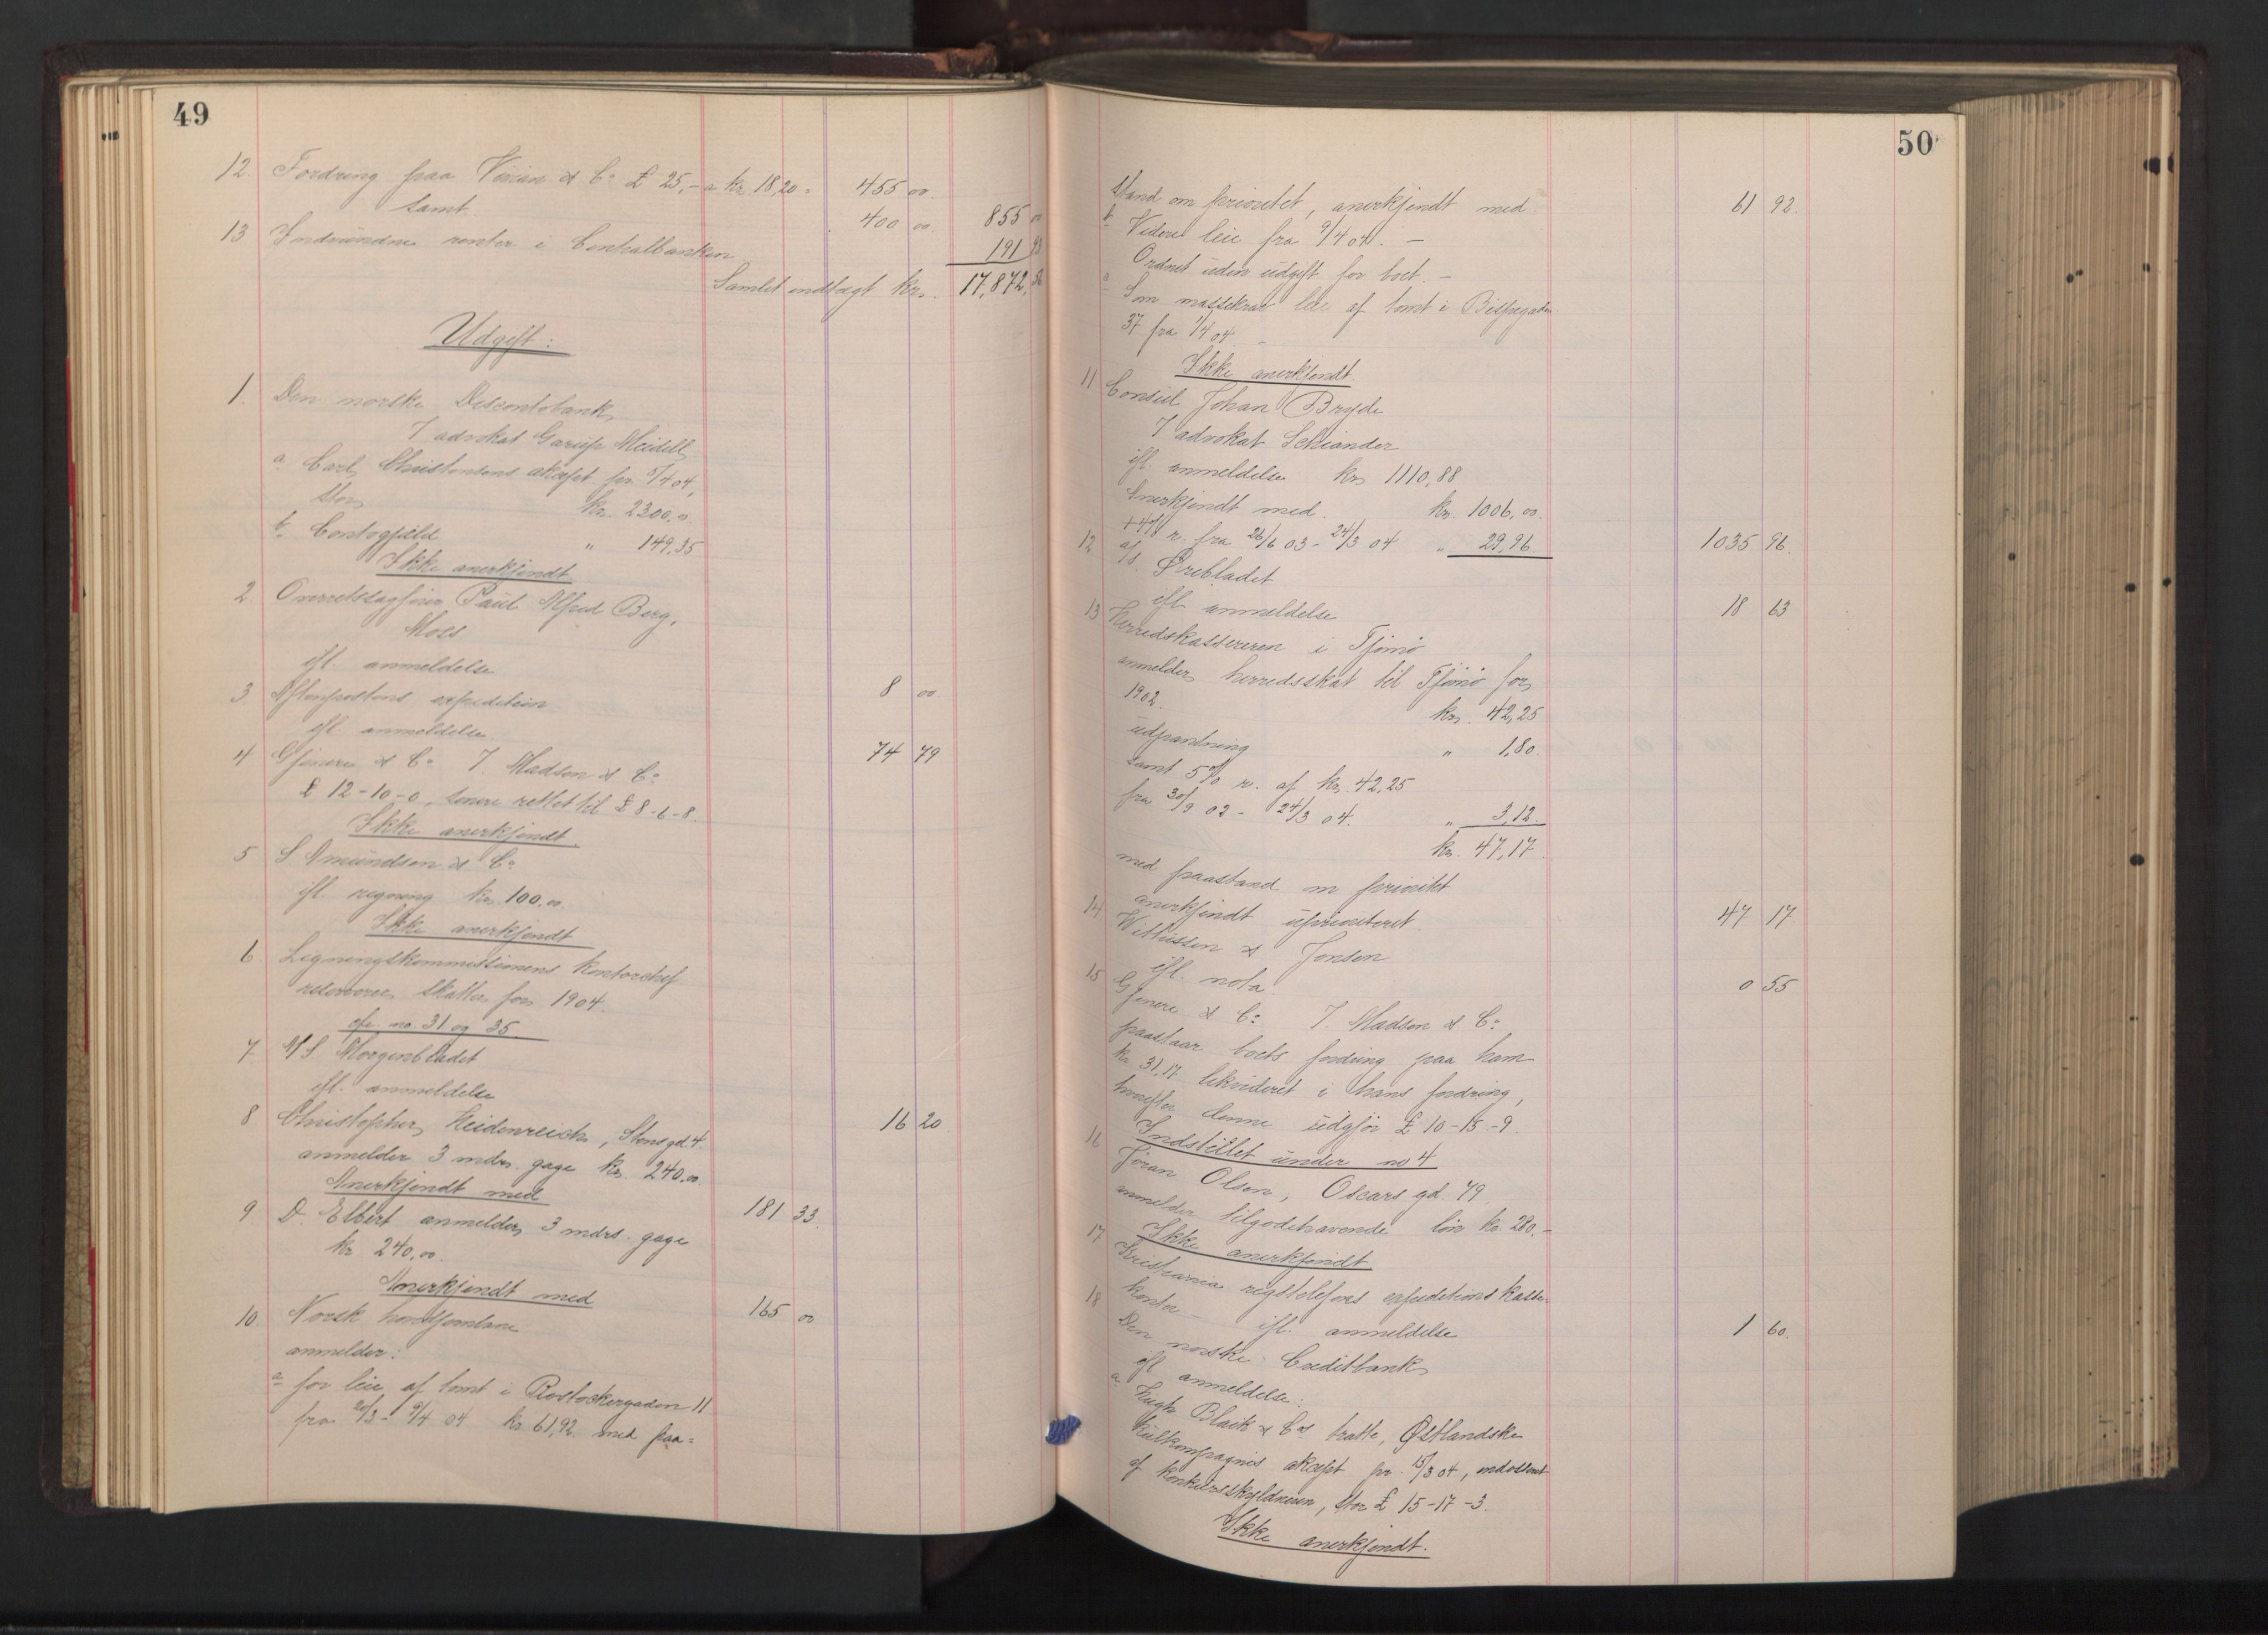 49
12. Fordring paa Vivian & Co £ 25,- a kr. 18,20 = 455 00
samt 400 00. 855 00
13 Indvundne renter i Centralbanken 191 98
Samlet indtægt kr. 17,872,56
Udgift:
1. Den norske Discontobank,
v/ advokat Garup Meidell
a Carl Christensens aksept pr. 5/4 04,
stor kr. 2300,00
b. Contogjæld " 149,35
Ikke anerkjendt
2. Overretssagfører Paul Alfred Berg,
Moss
ifl. anmeldelse 8 00.
3 Aftenpostens expedition
ifl. anmeldelse. 74 79
4 Gjinere & Co v/ Madsen & Co
£ 12-10-0, senere rettet til £ 8-6-8.
Ikke anerkjendt.
5 S. Amundsen & Co
ifl. regning kr. 100.00.
Ikke anerkjendt
6. Ligningskommissionens kontorchef
reserverer skatter for 1904.
cfr. no. 31 og 35.
7. A/S Morgenbladet
ifl. anmeldelse 16 20
8 Christopher Heidenreich, Stensgd. 4.
anmelder 3 mdrs. gage kr. 240.00.
Anerkjendt med 181 33.
9. D. Elbert anmelder 3 mdrs. gage
kr 240,00.
Anerkjendt med 165 00
10. Norsk
anmelder:
a for leie af tomt i Rostockergaden 11
fra 20/3 - 9/4 04 kr. 61,92 med paa=
50
stand om prioritet, anerkjendt med. 61 92.
b. Videre leie fra 9/4 04. –
Ordnet uden udgift for boet. –
Som massekrav leie af tomt i Bispegaden
37 fra 1/4 04. –
Ikke anerkjendt
11 Consul Johan Bryde
v/ advokat Schiander
ifl. anmeldelse kr. 1110,88
Anerkjendt med. kr. 1006,00.
+ 4% r. fra 26/6 03 - 24/3 04 " 29,96. 1035 96.
12 a/s. Ørebladet
ifl. anmeldelse 18 63
13 Herredskassereren i Tjømø
anmelder herredsskat til Tjømø for
1902. kr. 42,25
udpantning " 1,80.
samt 5% r. af kr. 42,25
fra 30/9 02 - 24/3 04. " 3,12.
kr. 47,17.
med paastand om prioritet
anerkjendt uprioriteret. 47 17
14 Wittussen & Jensen
ifl. nota 0 55
15 Gjinere & Co v/ Madsen & Co
paastaar boets fordring paa ham
kr. 31,17 likvideret i hans fordring,
hvorefter denne udgjør £ 10-15-9.
Indstillet under no 4
16 Jöran Olsen, Oscars gd. 79
anmelder tilgodehavende løn kr. 280,-
Ikke anerkjendt
17 Kristiania rigstelefons expeditions kasse-
kontor - ifl. anmeldelse 1 60.
18 Den norske Creditbank
ifl. anmeldelse:
a Hugh Blaik & Cos tratte, Østlandske
kulkompagnis aksept pr. 15/3 04, endosseret
af konkursskyldneren, stor £ 15-17-3.
Ikke anerkjendt.